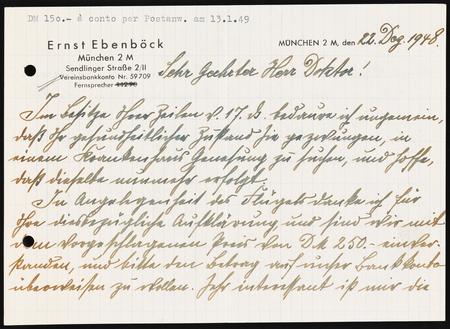 DM 150.- à conto per Postanw. am 13.1.49
Ernst Ebenböck
München 2 M
Sendlinger Straße 2/II
Vereinsbankkonto Nr. 59709
Fernsprecher
MÜNCHEN 2 M, den 22. Dez. 1948.
Sehr Geehrter Herr Doktor!
Im Besitze Ihrer Zeilen v. 17. ds. bedaure ich ungemein,
daß Ihr gesundheitlicher Zustand Sie gezwungen, in
einem Krankenhaus Genesung zu suchen, und hoffe,
daß dieselbe nunmehr erfolgt.
In Angelegenheit des Flügels danke ich für
Ihre diesbezügliche Aufklärung und sind wir mit
dem vorgeschlagenen Preis von D.M 250.- einver-
standen, und bitte den Betrag auf unser Bankkonto
überweisen zu wollen. Sehr interessant ist mir die